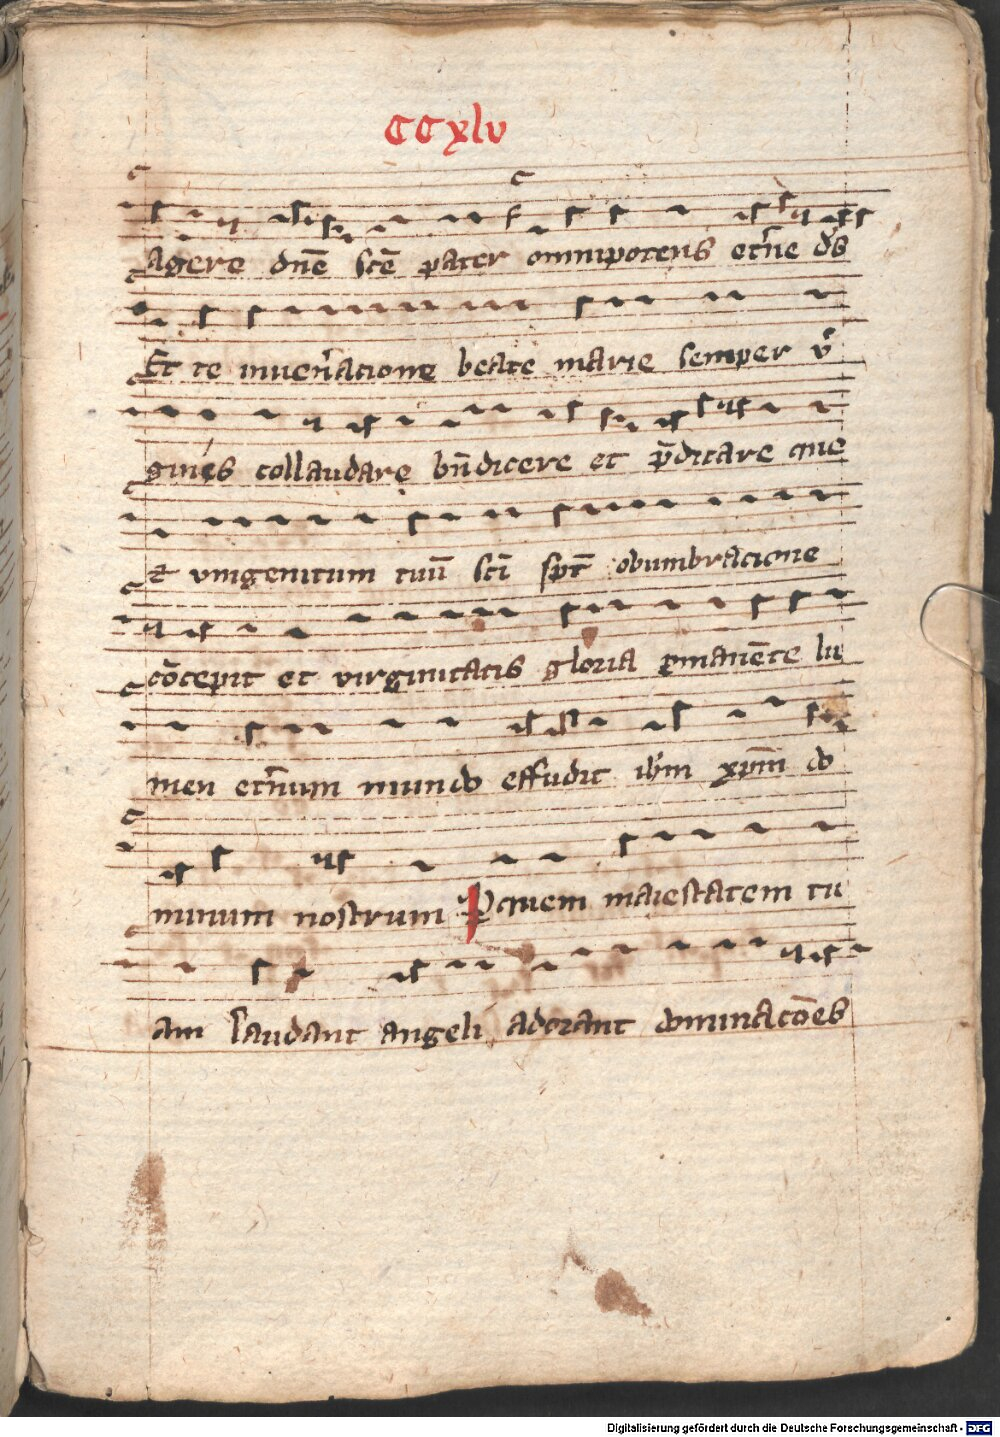 CCxlv
agere dn̄e sc̄e pater omnipotens et̄ne ds̄
Et te in ven̄acione beate marie semper v̄
ginis collaudare bn̄dicere et p̄dicare que
et vnigenitum tuū sc̄i sp̄t obumbracione
cōcepit et virginitatis gloria pmanēte lu
men et̄num mundo effudit ih̄m xp̄m do
minum nostrum Pquem maiestatem tu
am laudant angeli adorant dominacōes
Digitalisierung gefördert durch die Deutsche Forschungsgemeinschaft - DFG